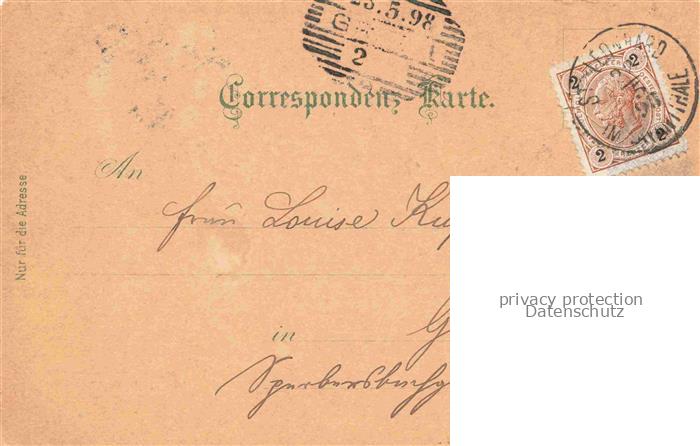 23.5.98
G
2
ST. LEONHARD
IM LAVANTTHALE
2 2
2 2
Correspondenz-Karte.
An
Frau Louise
Nur für die Adresse
privacy protection
Datenschutz
in G